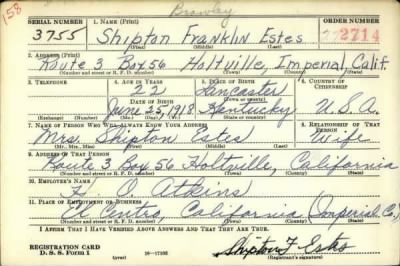 158
Brawley
SERIAL NUMBER 1. NAME (Print) ORDER NUMBER
3755 Shipton Franklin Estes 2714
(First) (Middle) (Last)
2. ADDRESS (Print)
Route 3 Box 56 Holtville, Imperial, Calif.
(Number and street or R. F. D. number) (Town) (County) (State)
3. TELEPHONE 4. AGE IN YEARS 5. PLACE OF BIRTH 6. COUNTRY OF CITIZENSHIP
22 Lancaster
DATE OF BIRTH (Town or county)
June 25, 1918 Kentucky U.S.A.
(Exchange) (Number) (Mo.) (Day) (Yr.) (State or country)
7. NAME OF PERSON WHO WILL ALWAYS KNOW YOUR ADDRESS 8. RELATIONSHIP OF THAT PERSON
Mrs. Shipton Estes Wife
(Mr., Mrs., Miss) (First) (Middle) (Last)
9. ADDRESS OF THAT PERSON
Route 3 Box 56 Holtville, California
(Number and street or R. F. D. number) (Town) (County) (State)
10. EMPLOYER'S NAME
O. Atkins
11. PLACE OF EMPLOYMENT OR BUSINESS
El Centro, California (Imperial Co.)
(Number and street or R. F. D. number) (Town) (County) (State)
I AFFIRM THAT I HAVE VERIFIED ABOVE ANSWERS AND THAT THEY ARE TRUE.
REGISTRATION CARD
D. S. S. Form 1 (over) 16-17105 Shipton F Estes
(Registrant's signature)